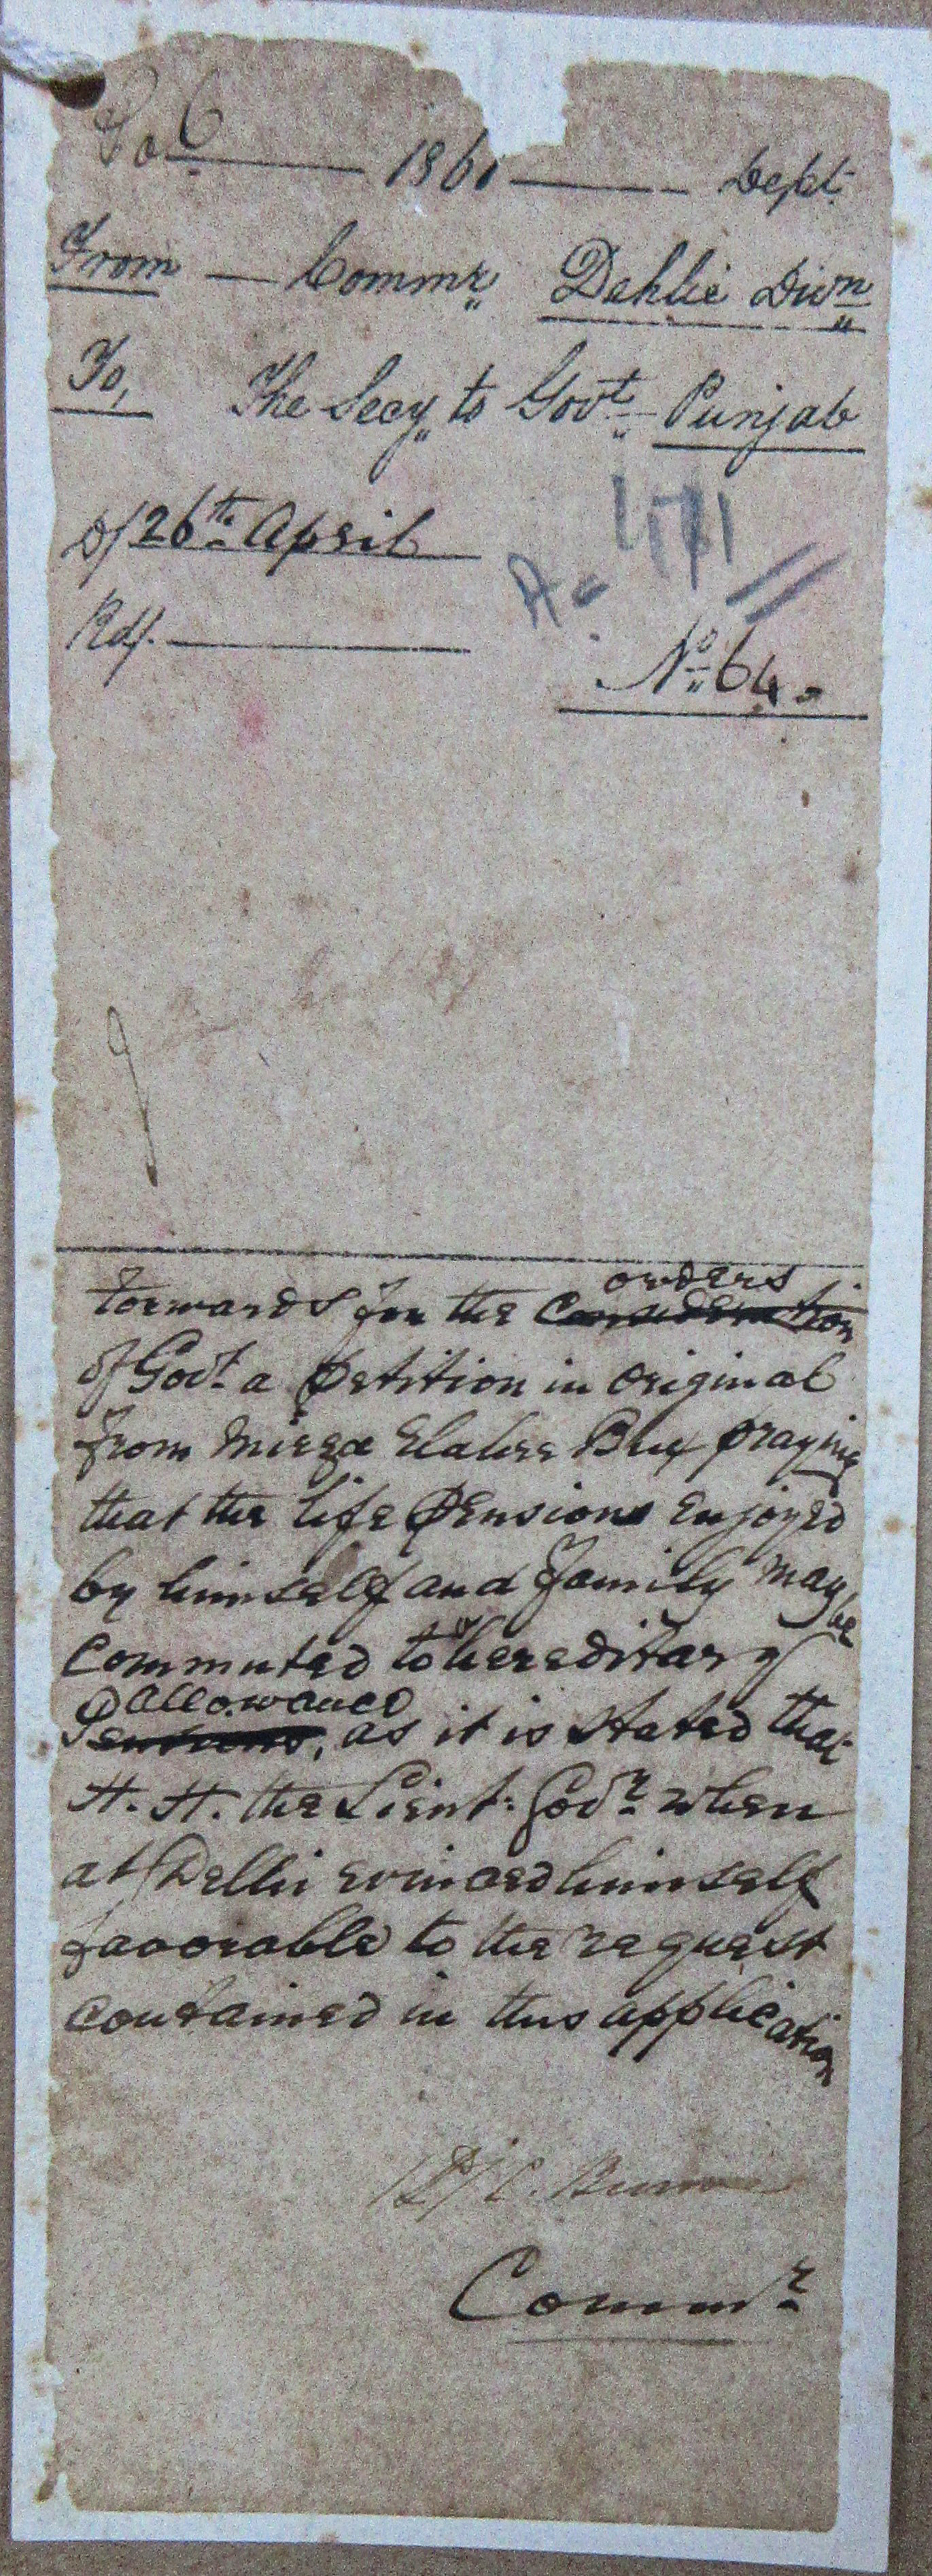 1861 Dept.
From Commr. Dehlie Divn
To, The Secy to Govt. Punjab
D/ 26th April
Rd/.
No. 64.
Forwards for the Consideration orders
of Govt. a petition in original
from Mirza Elahee Bux praying
that the life Pensions enjoyed
by himself and family may be
commuted to hereditary
Pensions, allowance as it is stated that
H. H. the Lieut: Govr. when
at Delhi evinced himself
favorable to the request
contained in this application
Commr.